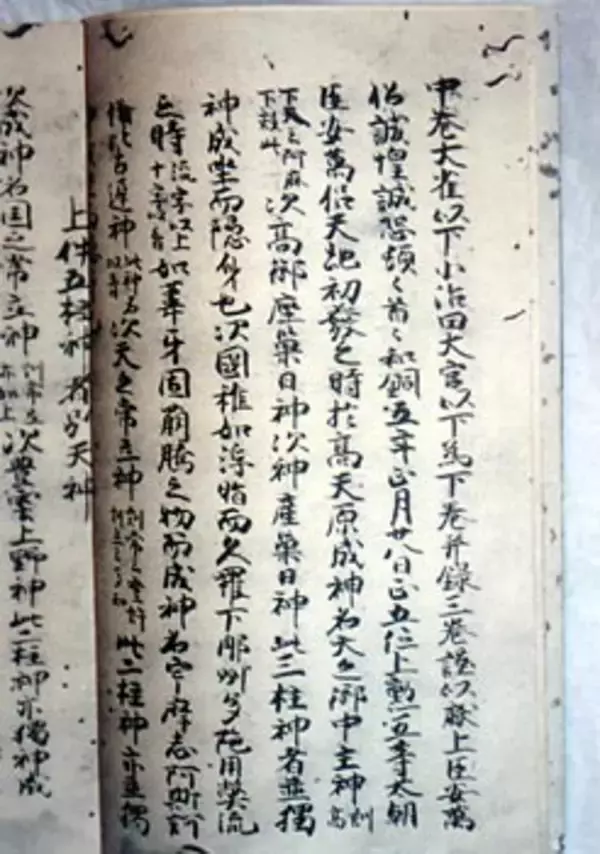 中卷大雀以下小治田大宮以下為下卷并錄三卷謹以獻上臣安萬
侶誠惶誠恐頓〻首〻和銅五年正月廿八日正五位上勲五等太朝
臣安萬侶天地初發之時於高天原成神名天之御中主神訓高
下天云阿麻下效此次高御座巢日神次神産巢日神此三柱神者並獨
神成坐而隱身也次國稚如浮脂而久羅下那州多陁用弊流
之時流字以上十字以音如葦牙因萌騰之物而成神名宇摩志阿斯訶
備比古遲神此神名以音次天之常立神訓常云登許訓立云多知此二柱神亦並獨
上件五柱神者別天神
次成神名国之常立神訓常立亦如上次豊雲上野神此二柱神亦獨神成